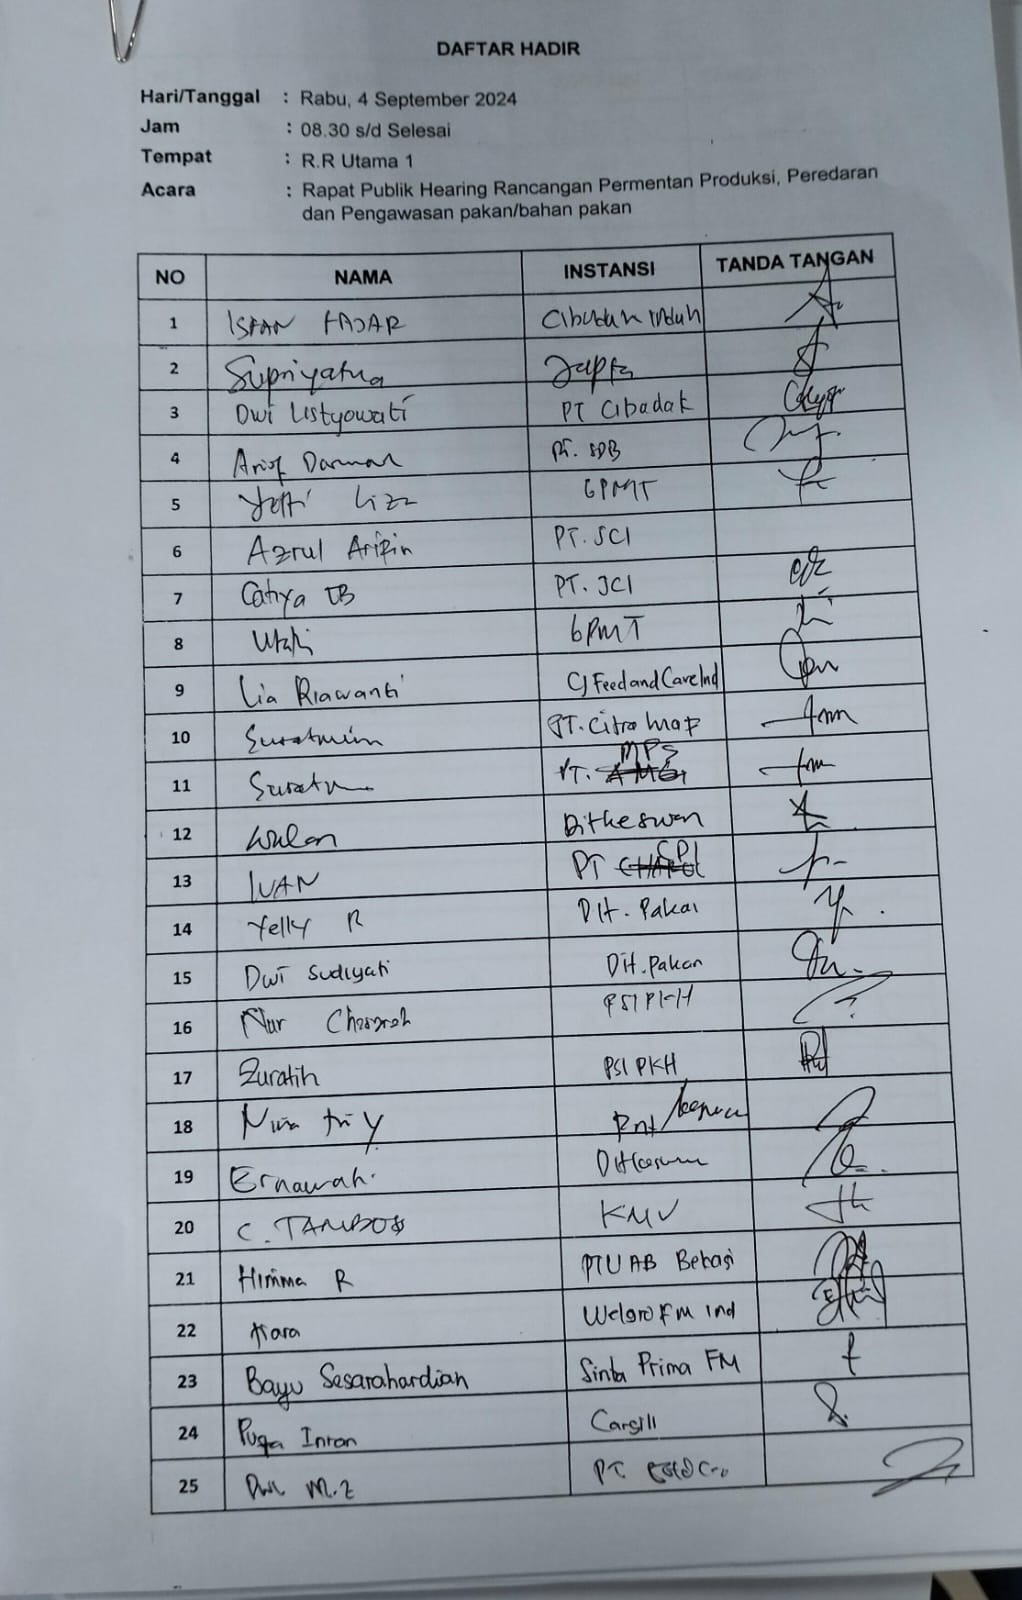 DAFTAR HADIR
Hari/Tanggal : Rabu, 4 September 2024
Jam : 08.30 s/d Selesai
Tempat : R.R Utama 1
Acara : Rapat Publik Hearing Rancangan Permentan Produksi, Peredaran
dan Pengawasan pakan/bahan pakan
NO NAMA INSTANSI TANDA TANGAN
1 FAJAR
2 Supriyatna Japfa
3 Dwi Listyowati PT Cibadak
4 Arief Darman Pt. SDB
5 Yetti Lizz GPMT
6 Azrul Aripin PT. SCI
7 Cahya PT. JCI
8 GPMT
9 Lia Riawanti CJ Feed and Care Ind
10 Suratmin PT. Citra
11 PT. MPS
12 Wulan Ditkeswan
13 IVAN PT CPI
14 Yelly R Dit. Pakan
15 Dwi Sudiyati Dit. Pakan
16 Nur PSI PKH
17 Zuratih PSI PKH
18 tri Y
19 Ernawati
20 C. KMV
21 Himma R PT UAB Bekasi
22 Welgro FM Ind
23 Bayu Sesarahardian Sinta Prima FM
24 Puga Cargill
25 M.Z PT